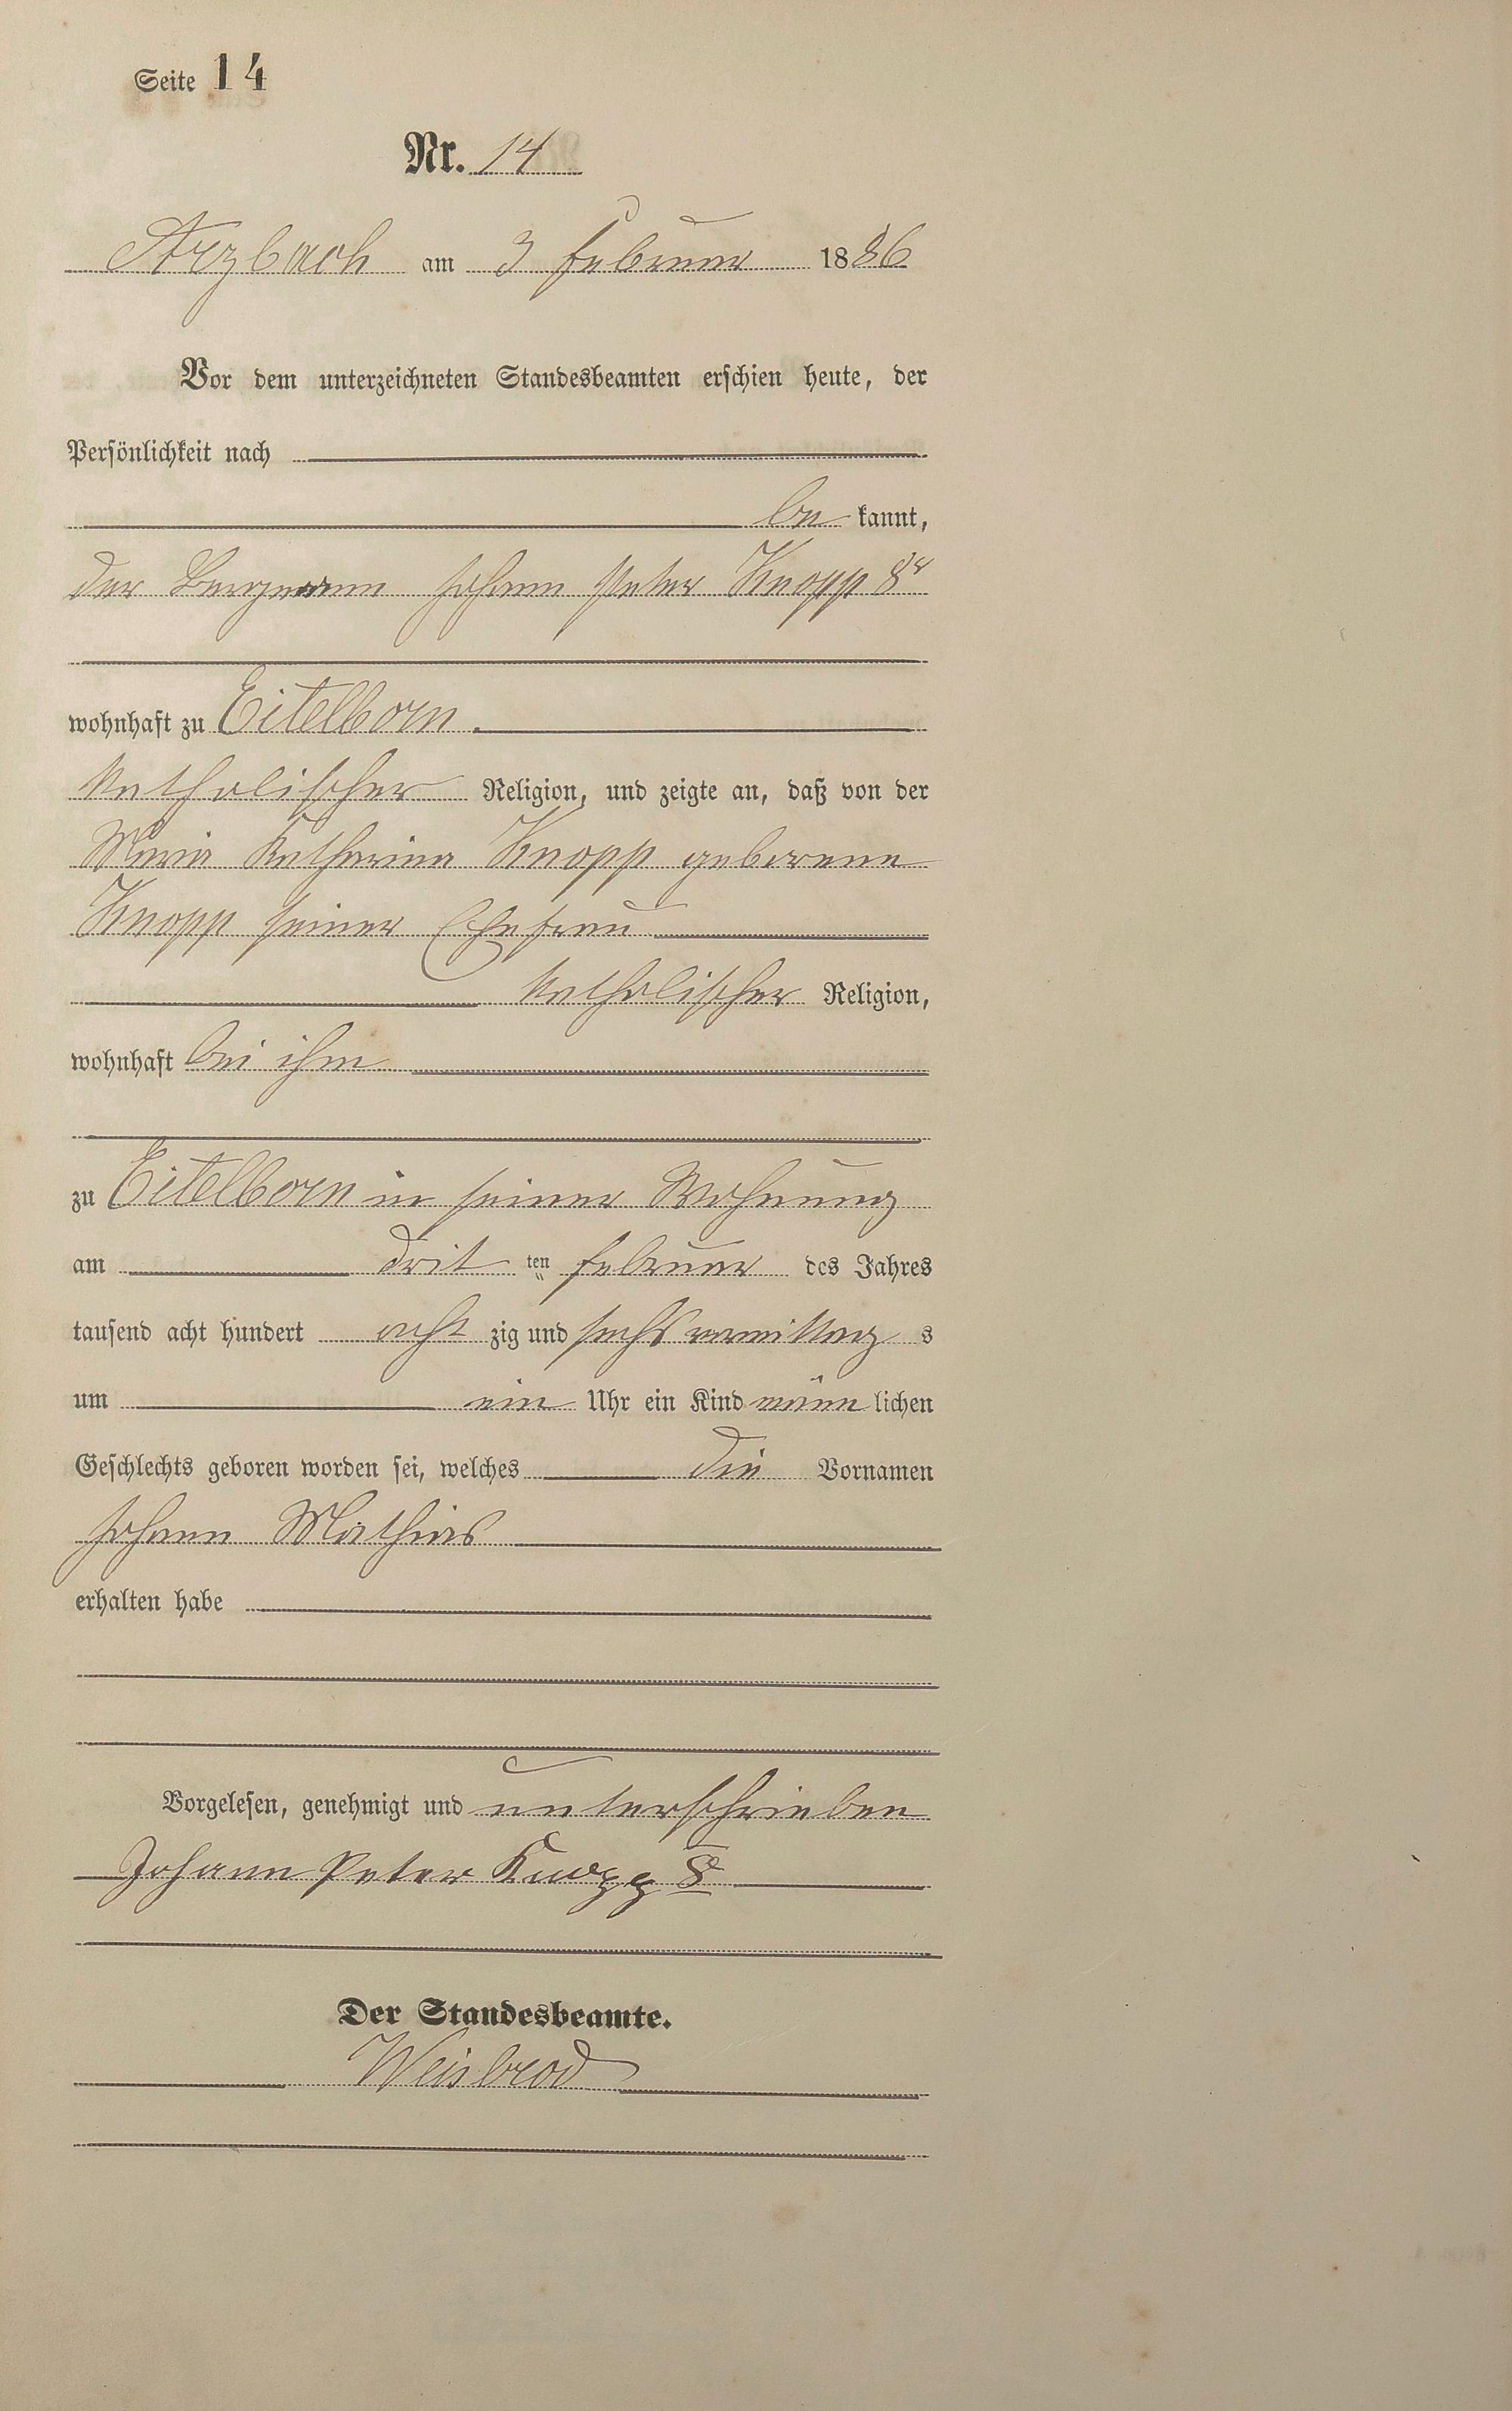 Seite 14
Nr. 14
Arzbach am 3 Februar 1886
Vor dem unterzeichneten Standesbeamten erschien heute, der
Persönlichkeit nach
be kannt,
der Bergmann Johann Peter Knopp 8r
wohnhaft zu Eitelborn.
katholischer Religion, und zeigte an, daß von der
Maria Katharina Knopp geborene
Knopp seiner Ehefrau
katholischer Religion,
wohnhaft bei ihm
zu Eitelborn in seiner Wohnung
am drit ten Februar des Jahres
tausend acht hundert acht zig und sechs vormittag s
um ein Uhr ein Kind männ lichen
Geschlechts geboren worden sei, welches die Vornamen
Johann Mathias
erhalten habe
Vorgelesen, genehmigt und unterschrieben
Johann Peter Knopp 8
Der Standesbeamte.
Weisbrod